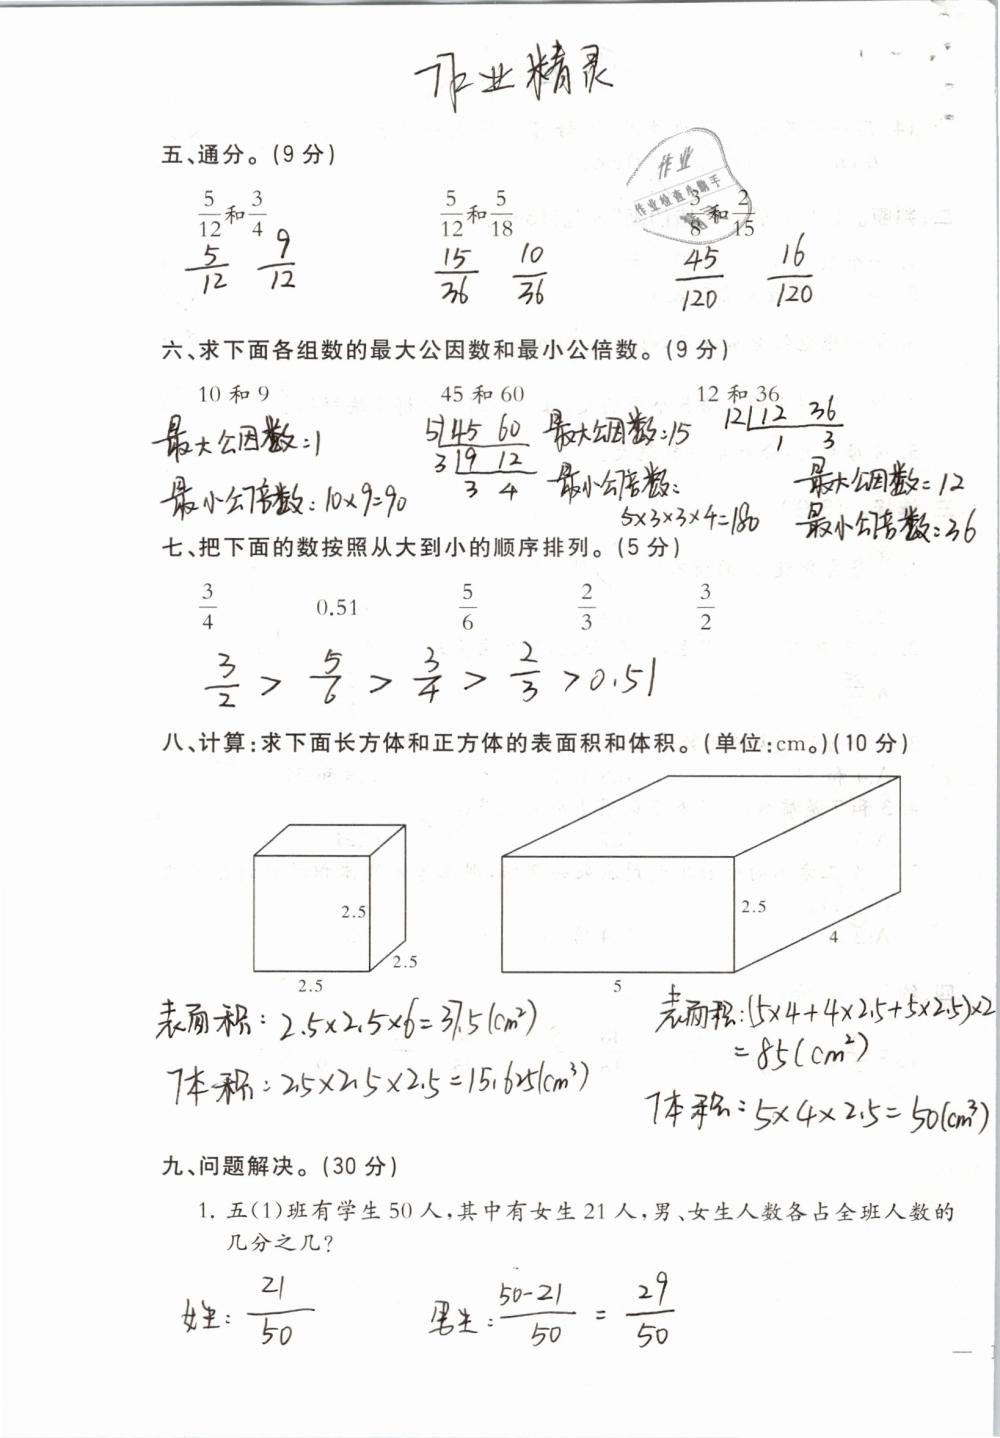 作业精灵
五、通分。(9分)
5/12和3/4 5/12和5/18 3/8和2/15
作业
作业检查小助手
5/12 9/12 15/36 10/36 45/120 16/120
六、求下面各组数的最大公因数和最小公倍数。(9分)
10和9 45和60 12和36
最大公因数:1 5 45 60 最大公因数:15 12 12 36
3 9 12 1 3
最小公倍数:10×9=90 3 4 最小公倍数: 最大公因数=12
5×3×3×4=180 最小公倍数:36
七、把下面的数按照从大到小的顺序排列。(5分)
3/4 0.51 5/6 2/3 3/2
3/2 > 5/6 > 3/4 > 2/3 >0.51
八、计算:求下面长方体和正方体的表面积和体积。(单位:cm。)(10分)
2.5 2.5 2.5
2.5 4 5
表面积:2.5×2.5×6=37.5(cm²) 表面积:(5×4+4×2.5+5×2.5)×2
=85(cm²)
体积:2.5×2.5×2.5=15.625(cm³)
体积:5×4×2.5=50(cm³)
九、问题解决。(30分)
1. 五(1)班有学生50人,其中有女生21人,男、女生人数各占全班人数的
几分之几?
女生:21/50 男生:50-21/50 = 29/50